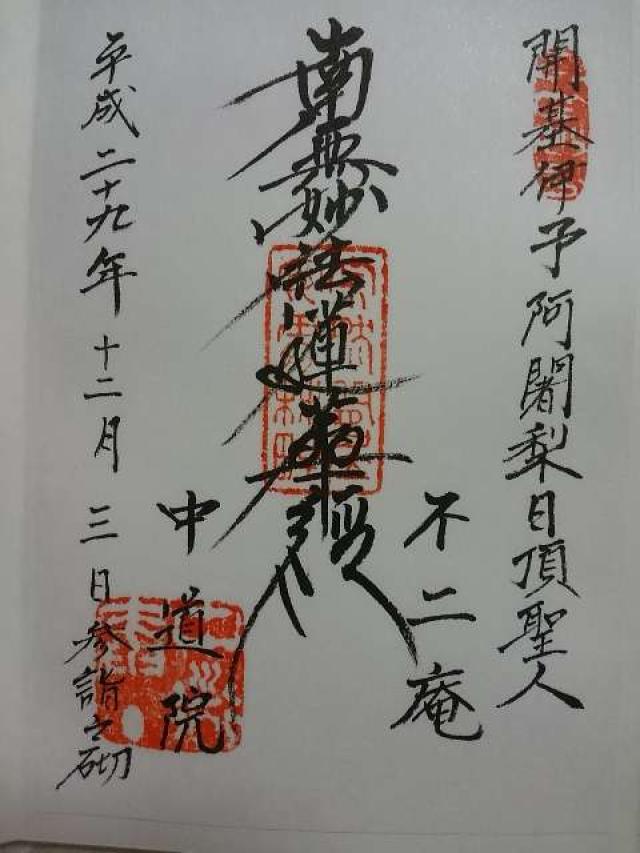 開基伊予阿闍梨日頂聖人
不二庵
南無妙法蓮華経
中道院
平成二十九年十二月三日参詣之砌